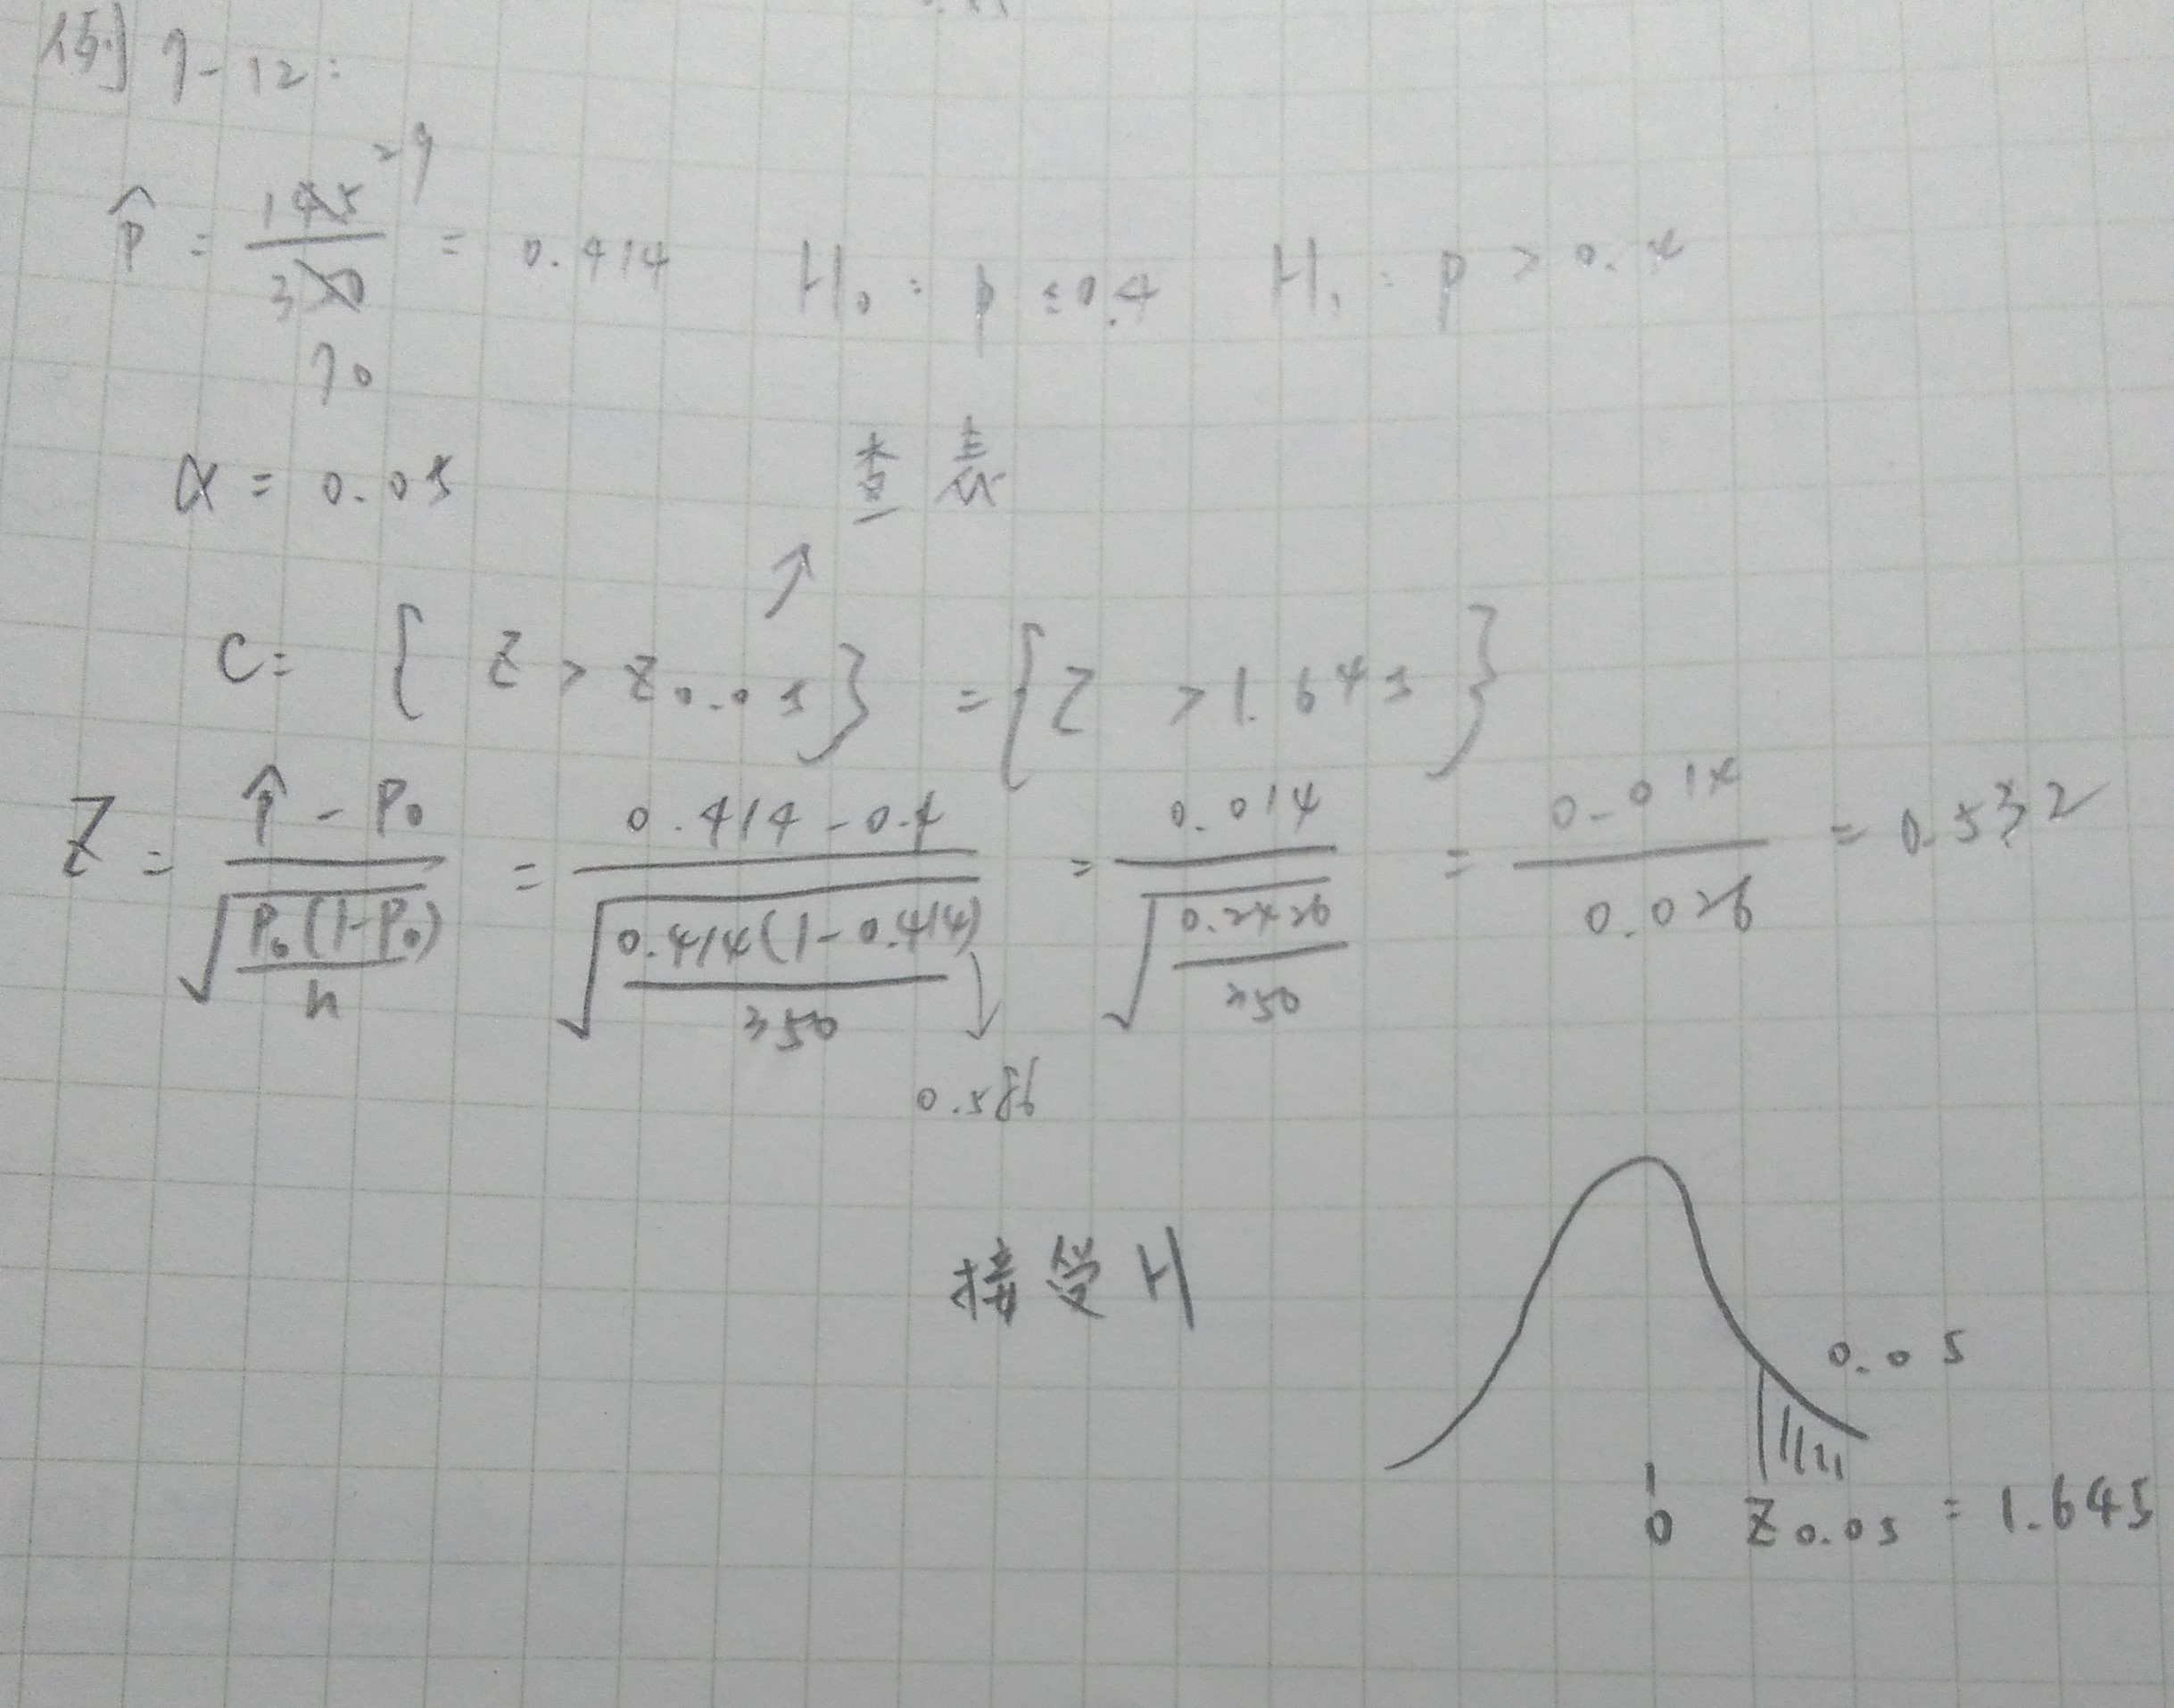 例 7-12:
p̂ = 145/350 29/70 = 0.414 H₀: p ≤ 0.4 H₁: p > 0.4
α = 0.05 查表
↗
C = { Z > Z0.05 } = { Z > 1.645 }
Z = (p̂ - P₀)/√(P₀(1-P₀)/n) = (0.414 - 0.4)/√(0.414(1-0.414)/350) = 0.014/√(0.2426/350) = 0.014/0.026 = 0.532
↓
0.586
接受 H
0.05
0 Z0.05 = 1.645